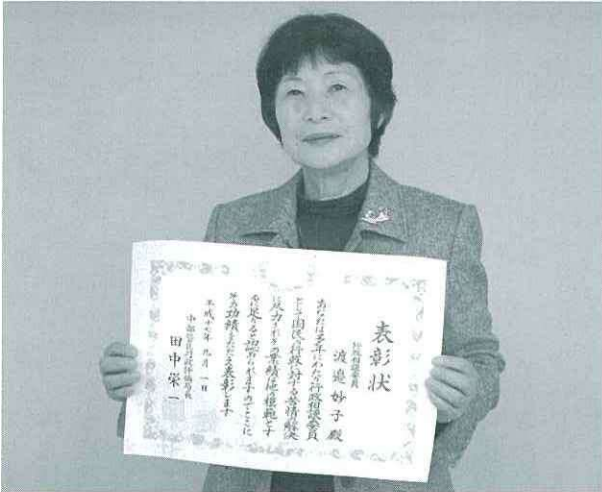 表彰状
行政相談委員
渡邉妙子殿
あなたは多年にわたり行政相談委員
として国民の行政に対する苦情の解決
に尽力しその業績は他の模範とす
るに足りると認められますのでここに
その功績をたたえ表彰します
平成十七年九月一日
中部管区行政評価局長
田中栄一